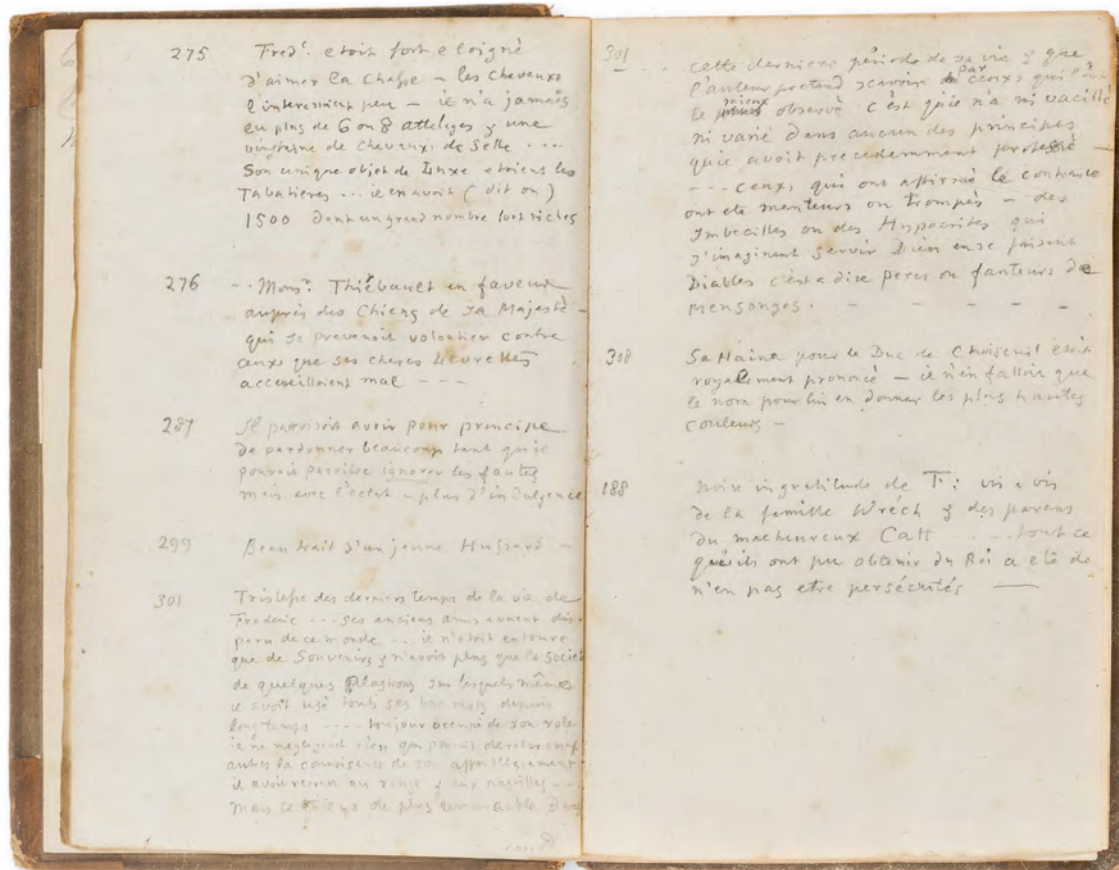 275 Fred<sup>c</sup>. etoit fort eloigné
d'aimer la Chasse – les Chevaux
l'interessoient peu – il n'a jamais
eu plus de 6 ou 8 attelages & une
vingtaine de Chevaux de Selle ...
Son unique objet de Luxe etoient les
Tabatieres ... il en avoit ( dit on )
1500 dont un grand nombre fort riches
276 -- Mons<sup>r</sup>. Thiébault en faveur
auprès des Chiens de Sa Majesté –
qui se prevenoit volontier contre
ceux que ses cheres Levrettes
accueilloient mal - - -
287 Il paroissoit avoir pour principe
de pardonner beaucoup tant qu'il
pouvoit paroitre ignorer les fautes
mais avec l'eclat – plus d'indulgence
299 Beau trait d'un jeune Hussard –
301 Tristesse des derniers temps de la vie de
Frederic ... ses anciens amis avoient dis-
paru de ce monde ... il n'etoit entouré
que de Souvenirs & n'avoit plus que la Societé
de quelques Plastrons sur lesquels mêmes
il avoit usé touts ses bon mots depuis
longtemps ---- toujour occupé de son role
il ne negligeoit rien qui pouvoit
autres la connoissance de son affoiblissement
il avoit recours au rouge & aux pastilles --
Mais ce de plus remarcable dans
301 - . . cette derniere période de sa vie & que
l'auteur pretend scavoir par ceux qui l'ont
le mieux observé c'est qu'il n'a ni vacillé
ni varié dans aucun des principes
qu'il avoit precedemment professé –
- - - ceux qui ont affirmé le contraire
ont eté menteurs ou trompés – des
Imbecilles ou des Hypocrites qui
s'imaginent servir Dieu en se faisant
Diables c'est a dire peres ou fauteurs de
Mensonges . - - - - -
308 Sa Haine pour le Duc de Choiseuil etoit
royalement prononcé – il n'en falloit que
le nom pour lui en donner les plus hautes
couleurs –
188 Noire ingratitude de F : vis a vis
de la famille Wréch & des parens
du malheureux Catt . . . tout ce
qu'ils ont pu obtenir du Roi a eté de
n'en pas etre persécutés —